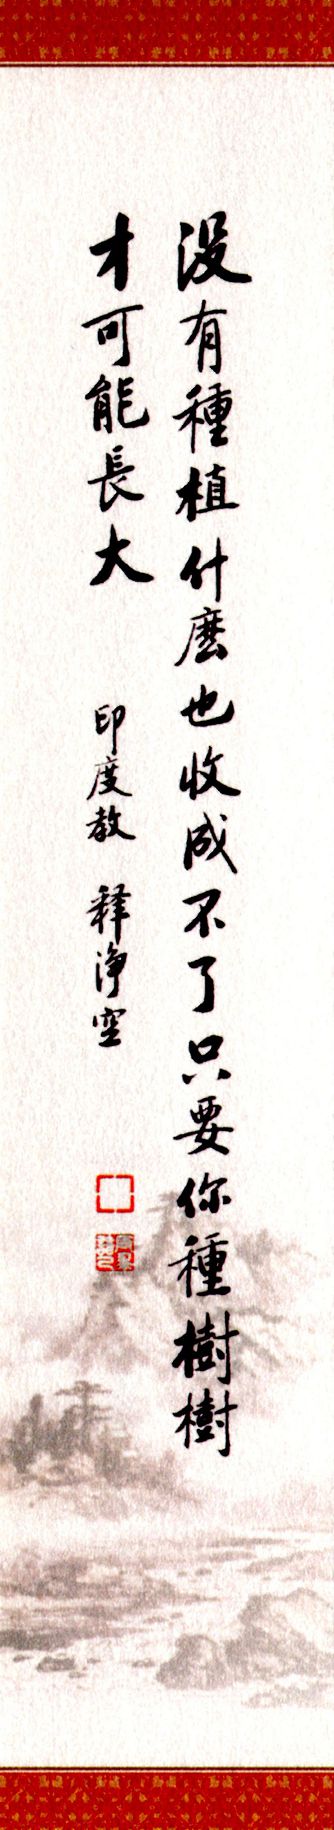 没有種植什麽也收成不了只要你種樹樹
才可能長大
印度教 释淨空